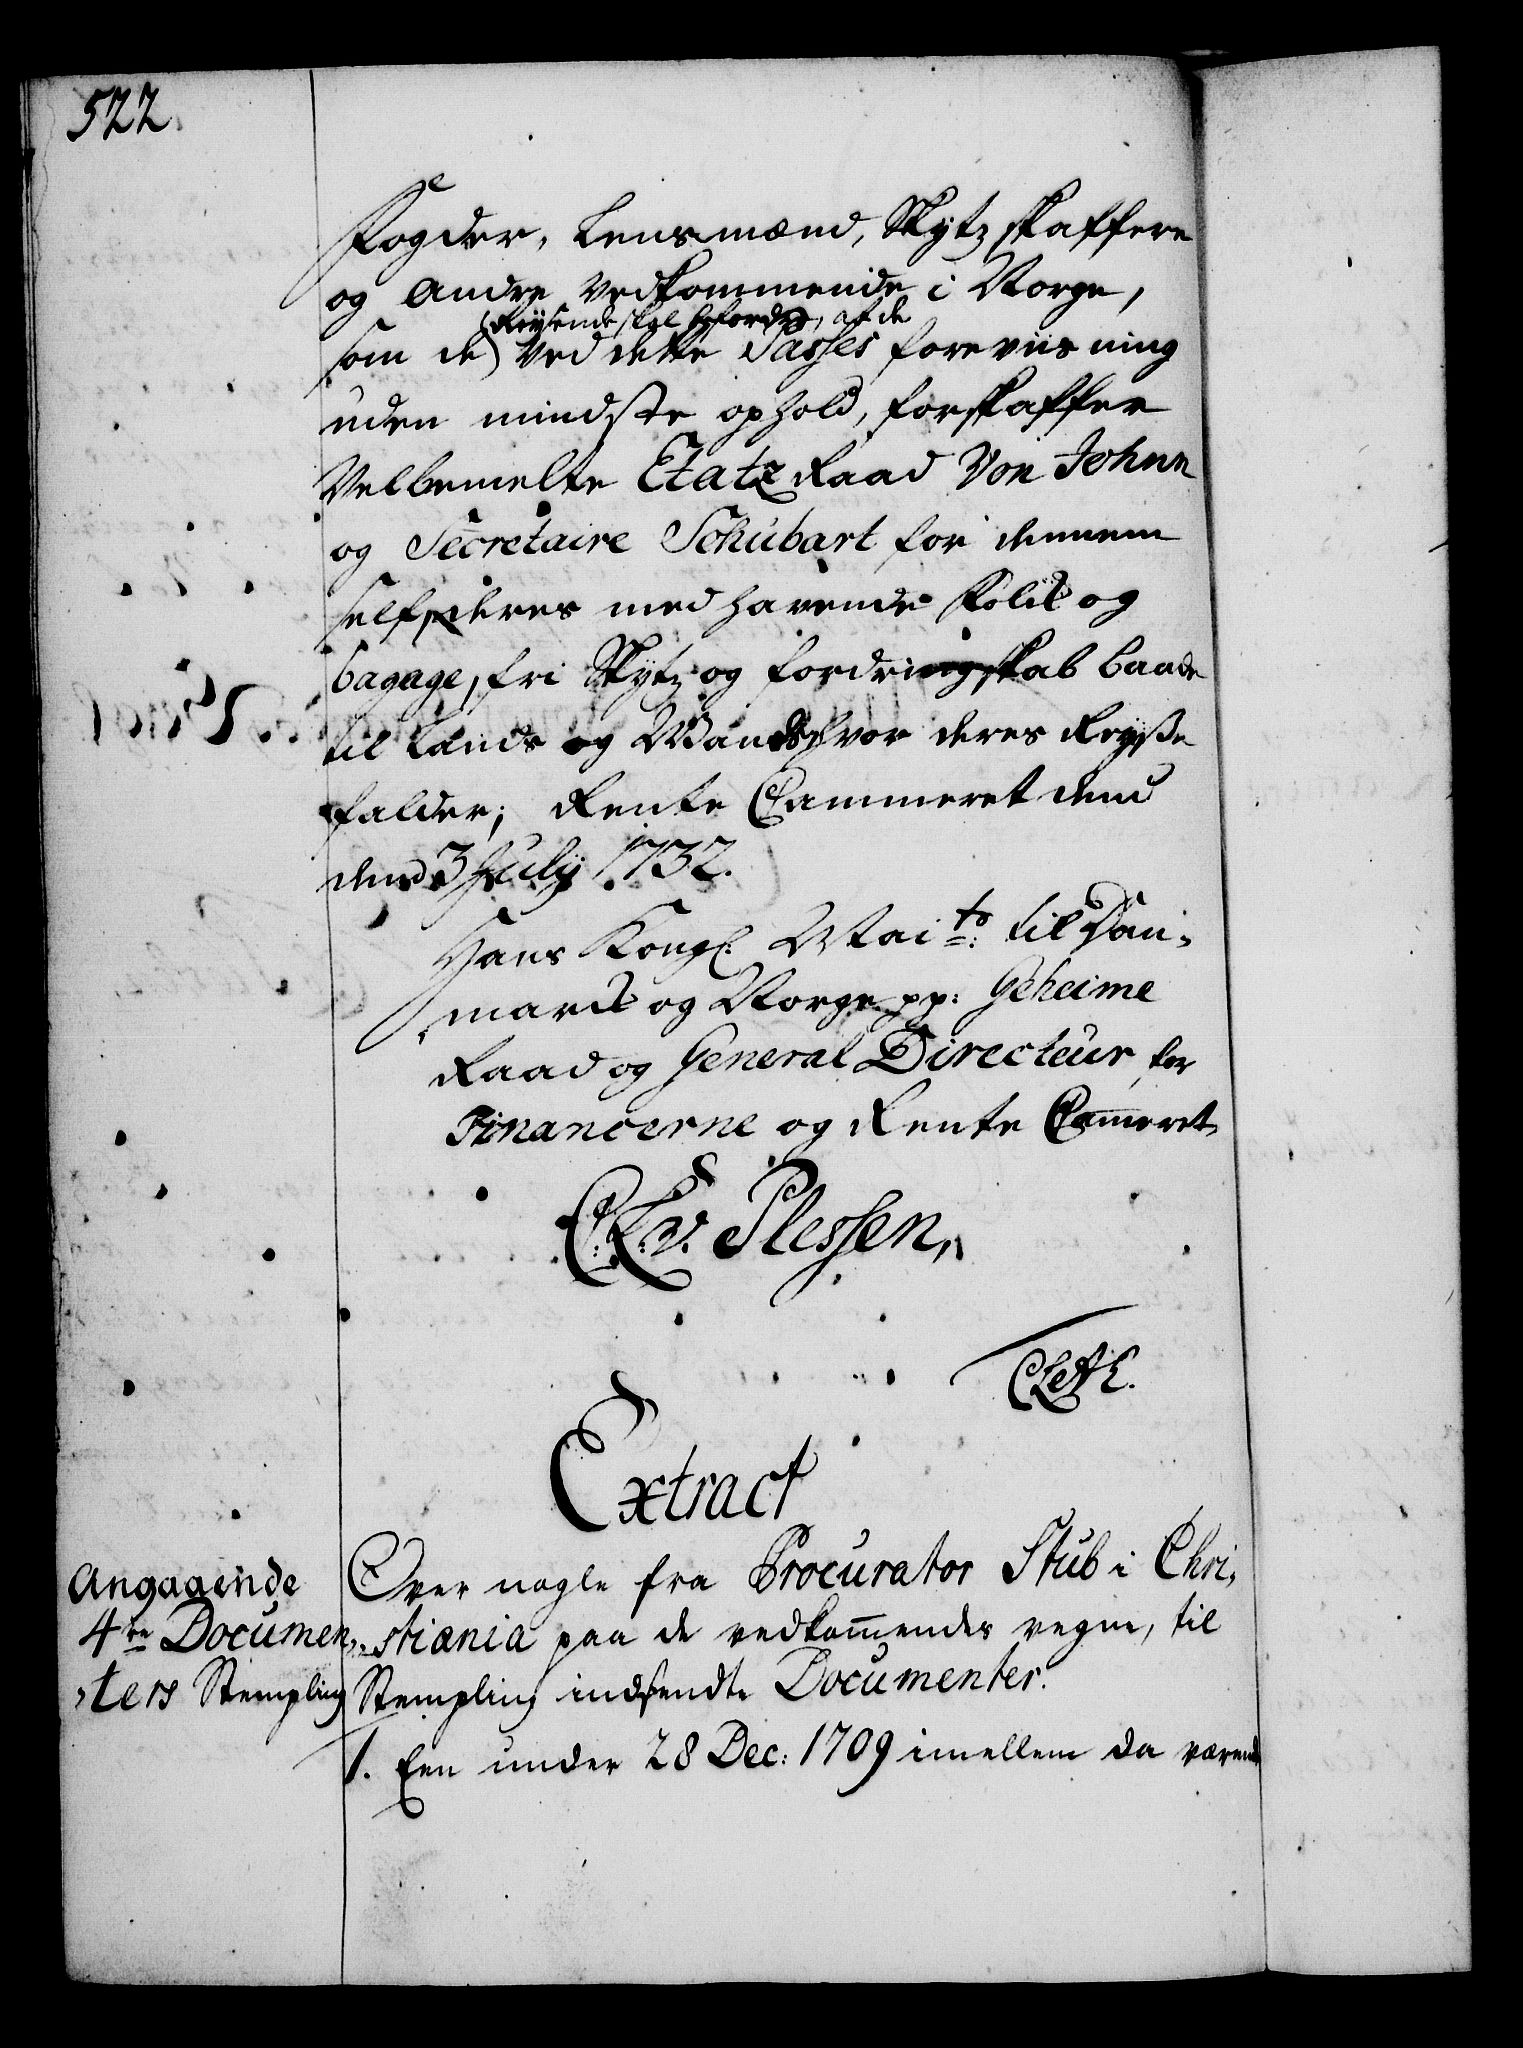 522
Fogder, Lensmænd, Skytz skaffere
og andre Vedkommende i Norge,
Reÿsende skal befordres, at de
som de) Ved dette Passes foreviisning
uden mindste ophold, forskaffer
Velbemelte Etatz Raad Von Johnn
og Secretaire Schubart for dennem
self, deres med havende Folk og
bagage, fri Skytz og fordringskab baade
til Lands og Wands hvor deres Reyße
falder; Rente Cammeret dend
dend 3 Julij 1732.
Hans Kongl: Mai:ts til Dan-
marck og Norge pp: Geheime
Raad og General Directeur for
Financerne og Rente Cam̅eret
C: A: v. Plessen,
Extract
Angaaende
4re Documen,
,ters Stempling
Over nogle fra Procurator Stub i Chri,
,stiania paa de vedkom̅endes vegne, til
Stempling indsendte Documenter.
1. Een under 28 Dec: 1709 imellem da værende